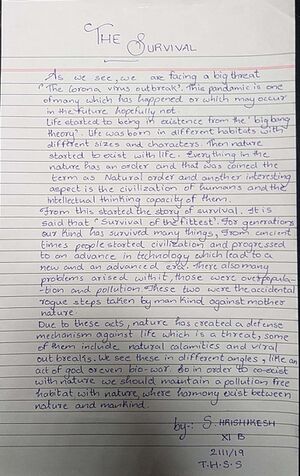 THE
SURVIVAL
As we see, we are facing a big threat
"The Corona virus outbreak". This pandamic is one
of many which has happened or which may occur
in the future hopefully not.
Life started to being in existence from the 'big bang
theory'. Life was born in different habitats with
different sizes and characters. Then nature
started to exist with life. Everything in the
nature has an order and that was coined the
term as Natural order and another interesting
aspect is the civilization of humans and the
intellectual thinking capacity of them.
From this started the story of survival. It is
said that "Survival of the fittest". For generations
our kind has survived many things, From ancient
times people started civilization and progressed
to an advance in technology which lead to a
new and an advanced era. There also many
problems arised with it, those were overpopula-
-tion and pollution. These two were the accidental
rogue steps taken by man kind against mother
nature.
Due to these acts, nature has created a defense
mechanism against life which is a threat, some
of them include natural calamities and viral
out breaks. We see these in different angles, like an
act of god or even bio-war. So in order to co-exist
with nature we should maintain a pollution free
habitat with nature, where harmony exist between
nature and mankind.
by:- S. HRISHIKESH
XI B
2111/19
T.H.S.S